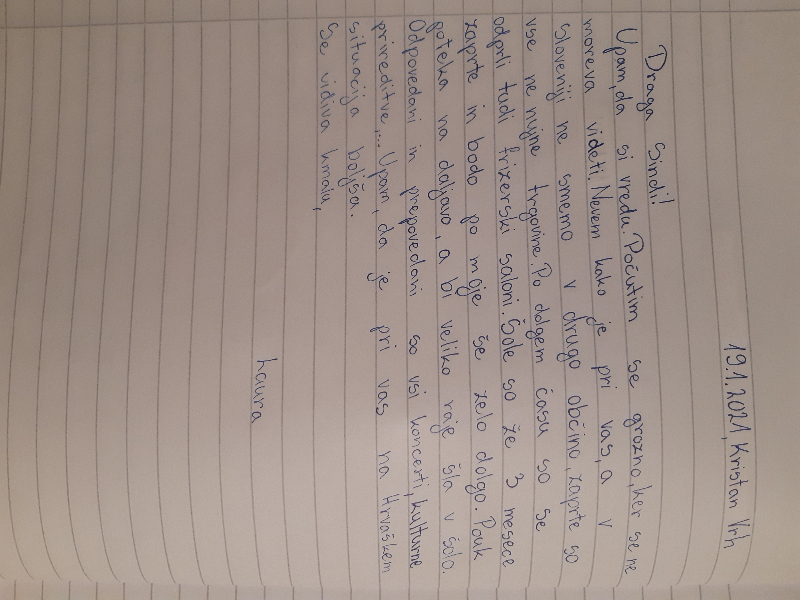 19.1.2021, Kristan Vrh
Draga Sindi!
Upam, da si vredu. Počutim se grozno, ker se ne
moreva videti. Nevem kako je pri vas, a v
Sloveniji ne smemo v drugo občino, zaprte so
vse ne nujne trgovine. Po dolgem času so se
odprli tudi frizerski saloni. Šole so že 3 mesece
zaprte in bodo po moje še zelo dolgo. Pouk
poteka na daljavo, a bi veliko raje šla v šolo.
Odpovedani in prepovedani so vsi koncerti, kulturne
prireditve,... Upam, da je pri vas na Hrvaškem
situacija boljša.
Se vidiva kmalu,
Laura